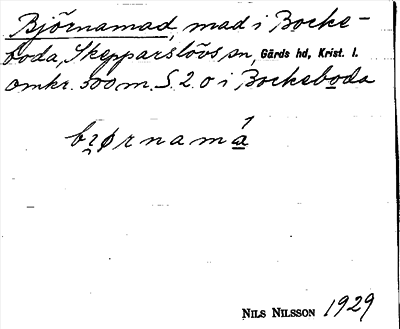 Björnamad, mad i Bocke-
boda, Skepparslövs sn, Gärds hd, Krist. l.
omkr. 500 m. S. 2. 0 i Bockeboda
bɀørnamá
NILS NILSSON 1929